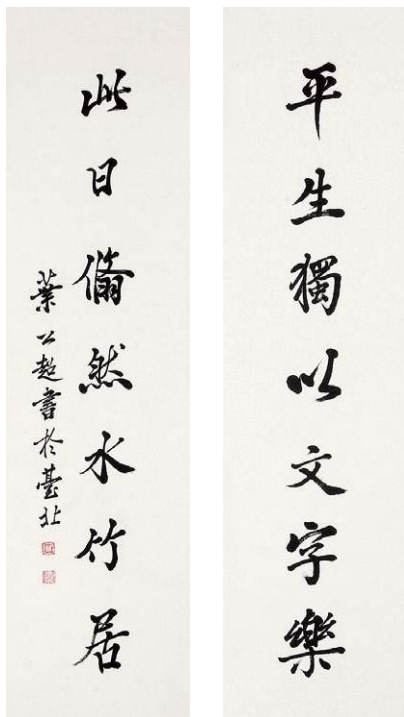 平生獨以文字樂
此日翛然水竹居
葉公超書於臺北